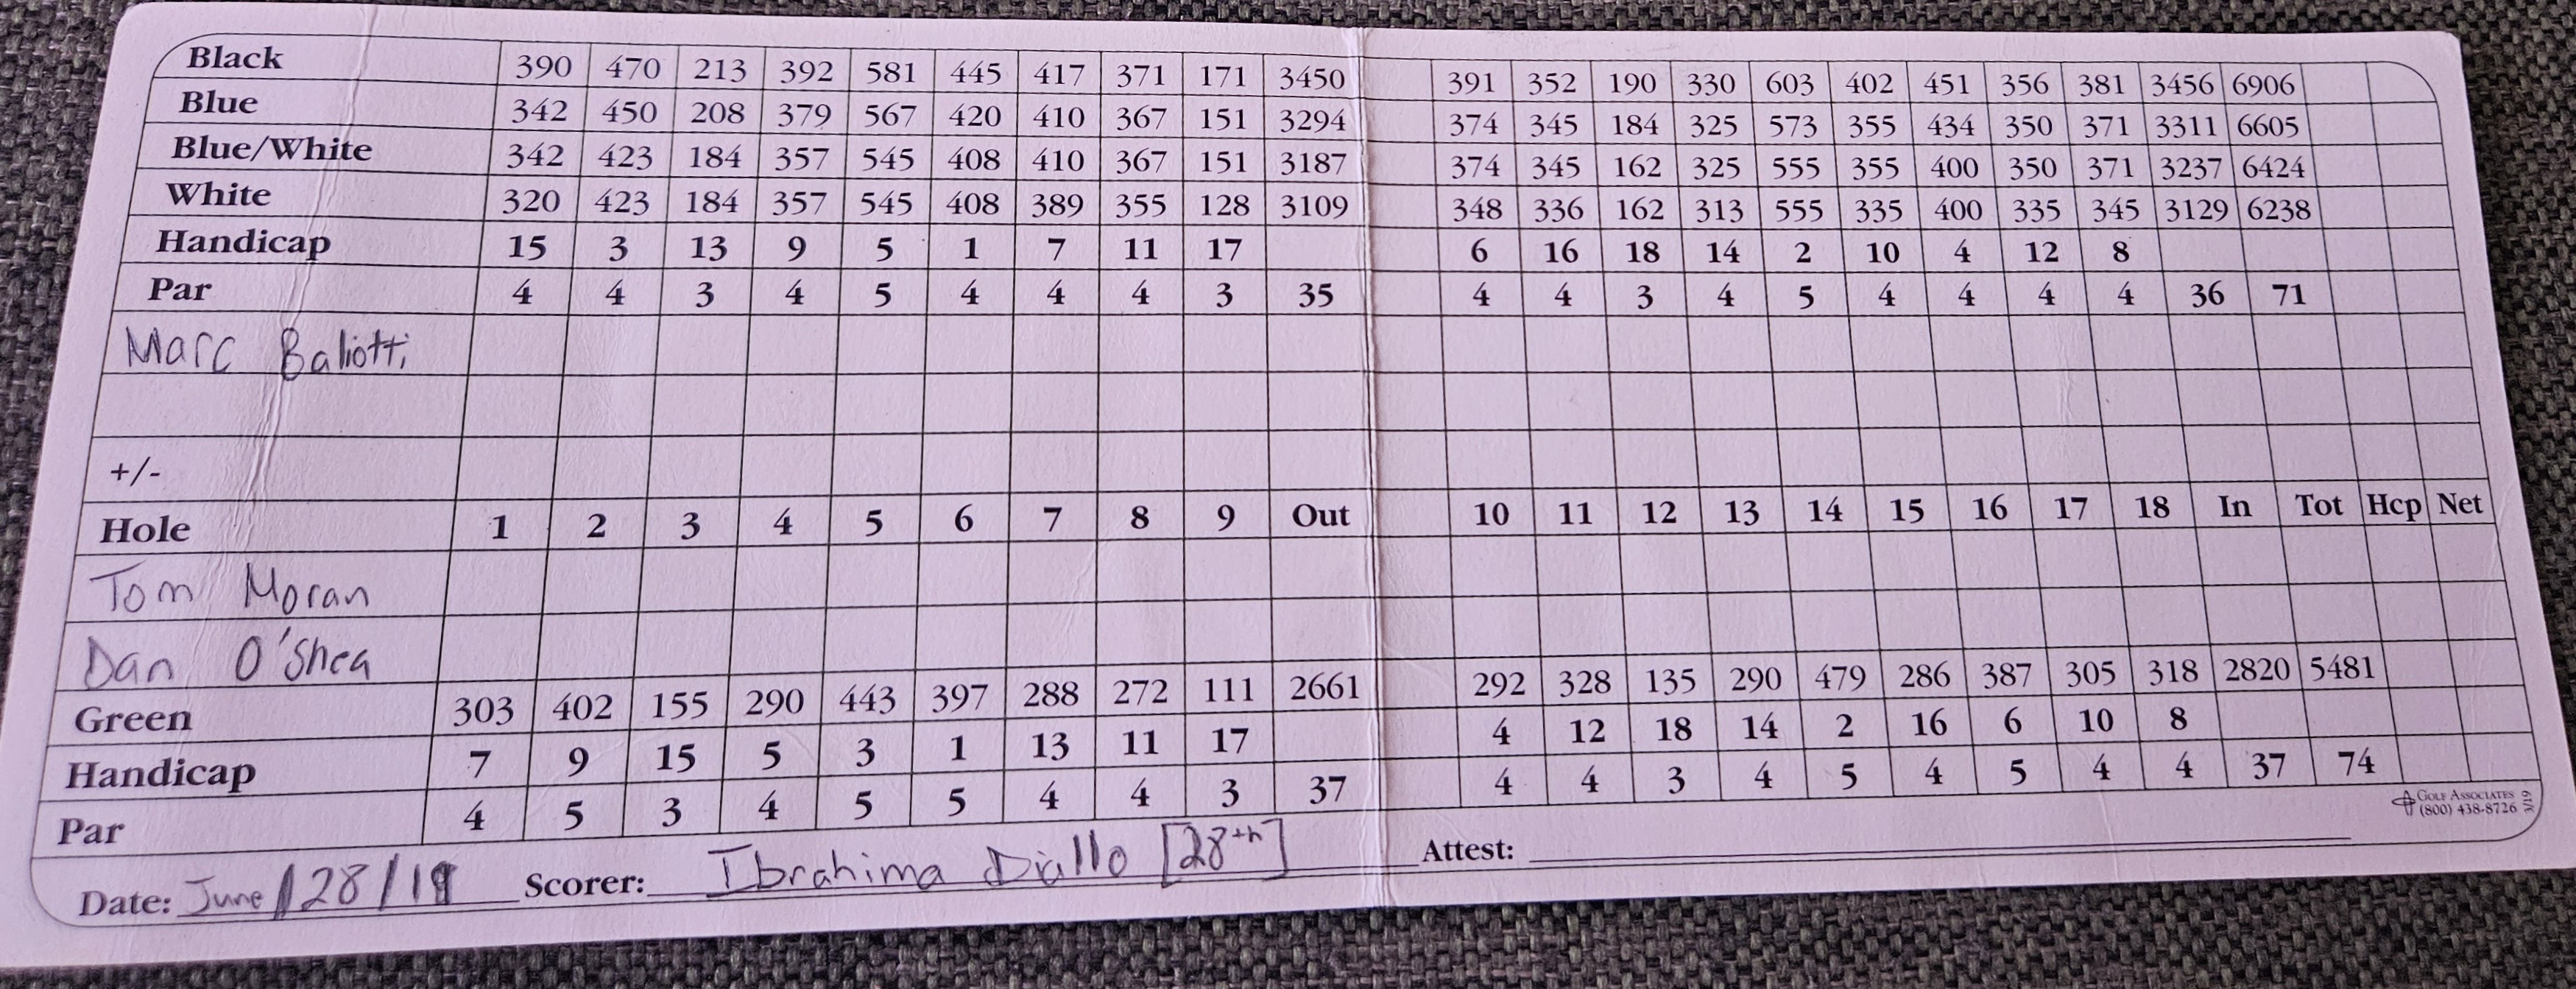 Black 390 470 213 392 581 445 417 371 171 3450 391 352 190 330 603 402 451 356 381 3456 6906
Blue 342 450 208 379 567 420 410 367 151 3294 374 345 184 325 573 355 434 350 371 3311 6605
Blue/White 342 423 184 357 545 408 410 367 151 3187 374 345 162 325 555 355 400 350 371 3237 6424
White 320 423 184 357 545 408 389 355 128 3109 348 336 162 313 555 335 400 335 345 3129 6238
Handicap 15 3 13 9 5 1 7 11 17 6 16 18 14 2 10 4 12 8
Par 4 4 3 4 5 4 4 4 3 35 4 4 3 4 5 4 4 4 4 36 71
Marc Baliotti
+/-
Hole 1 2 3 4 5 6 7 8 9 Out 10 11 12 13 14 15 16 17 18 In Tot Hcp Net
Tom Moran
Dan O'Shea
Green 303 402 155 290 443 397 288 272 111 2661 292 328 135 290 479 286 387 305 318 2820 5481
Handicap 7 9 15 5 3 1 13 11 17 4 12 18 14 2 16 6 10 8
Par 4 5 3 4 5 5 4 4 3 37 4 4 3 4 5 4 5 4 4 37 74
Golf Associates
(800) 438-8726
Date: June/28/19 Scorer: Ibrahima Diallo [28th] Attest: